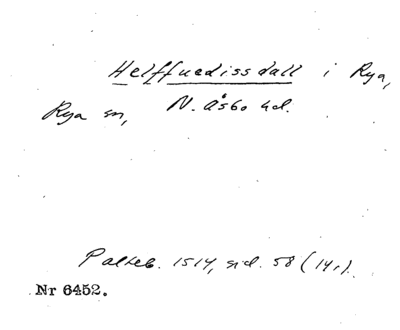 Helffuedissdall i Rya,
Rya sn, N. Åsbo hd.
Palteb. 1514, sid. 58 (14,).
Nr 6452.